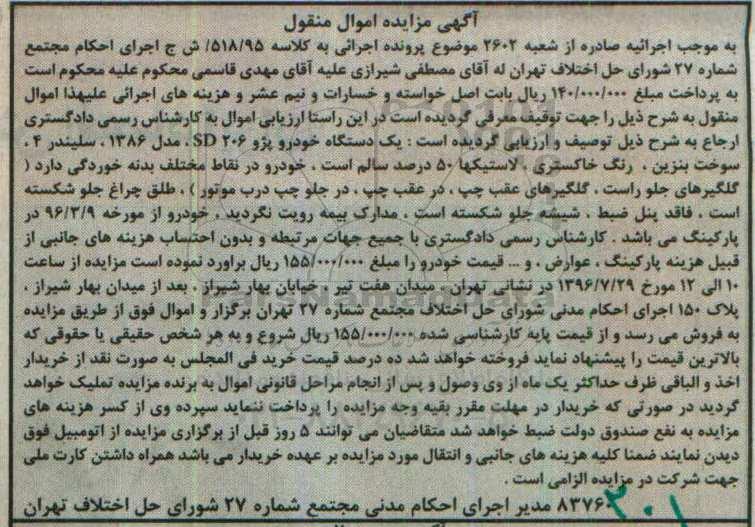 آگهی مزایده اموال منقول
به موجب اجرائیه صادره از شعبه ۲۶۰۲ موضوع پرونده اجرائی به کلاسه ۵۱۸/۹۵/ ش ج اجرای احکام مجتمع
شماره ۲۷ شورای حل اختلاف تهران له آقای مصطفی شیرازی علیه آقای مهدی قاسمی محکوم علیه محکوم است
به پرداخت مبلغ ۱۴۰/۰۰۰/۰۰۰ ریال بابت اصل خواسته و خسارات و نیم عشر و هزینه های اجرائی علیهذا اموال
منقول به شرح ذیل را جهت توقیف معرفی گردیده است در این راستا ارزیابی اموال به کارشناس رسمی دادگستری
ارجاع به شرح ذیل توصیف و ارزیابی گردیده است : یک دستگاه خودرو پژو ۲۰۶ SD ، مدل ۱۳۸۶ ، سلیندر ۴ ،
سوخت بنزین ، رنگ خاکستری ، لاستیکها ۵۰ درصد سالم است ، خودرو در نقاط مختلف بدنه خوردگی دارد (
گلگیرهای جلو راست ، گلگیرهای عقب چپ ، در عقب چپ ، در جلو چپ درب موتور ) ، طلق چراغ جلو شکسته
است ، فاقد پنل ضبط ، شیشه جلو شکسته است ، مدارک بیمه رویت نگردید ، خودرو از مورخه ۹۶/۳/۹ در
پارکینگ می باشد . کارشناس رسمی دادگستری با جمیع جهات مرتبطه و بدون احتساب هزینه های جانبی از
قبیل هزینه پارکینگ ، عوارض ، و ... قیمت خودرو را مبلغ ۱۵۵/۰۰۰/۰۰۰ ریال براورد نموده است مزایده از ساعت
۱۰ الی ۱۲ مورخ ۱۳۹۶/۷/۲۹ در نشانی تهران ، میدان هفت تیر ، خیابان بهار شیراز ، بعد از میدان بهار شیراز ،
پلاک ۱۵۰ اجرای احکام مدنی شورای حل اختلاف مجتمع شماره ۲۷ تهران برگزار و اموال فوق از طریق مزایده
به فروش می رسد و از قیمت پایه کارشناسی شده ۱۵۵/۰۰۰/۰۰۰ ریال شروع و به هر شخص حقیقی یا حقوقی که
بالاترین قیمت را پیشنهاد نماید فروخته خواهد شد ده درصد قیمت خرید فی المجلس به صورت نقد از خریدار
اخذ و الباقی ظرف حداکثر یک ماه از وی وصول و پس از انجام مراحل قانونی اموال به برنده مزایده تملیک خواهد
گردید در صورتی که خریدار در مهلت مقرر بقیه وجه مزایده را پرداخت ننماید سپرده وی از کسر هزینه های
مزایده به نفع صندوق دولت ضبط خواهد شد متقاضیان می توانند ۵ روز قبل از برگزاری مزایده از اتومبیل فوق
دیدن نمایند ضمنا کلیه هزینه های جانبی و انتقال مورد مزایده بر عهده خریدار می باشد همراه داشتن کارت ملی
جهت شرکت در مزایده الزامی است .
۸۳۷۶۰ مدیر اجرای احکام مدنی مجتمع شماره ۲۷ شورای حل اختلاف تهران